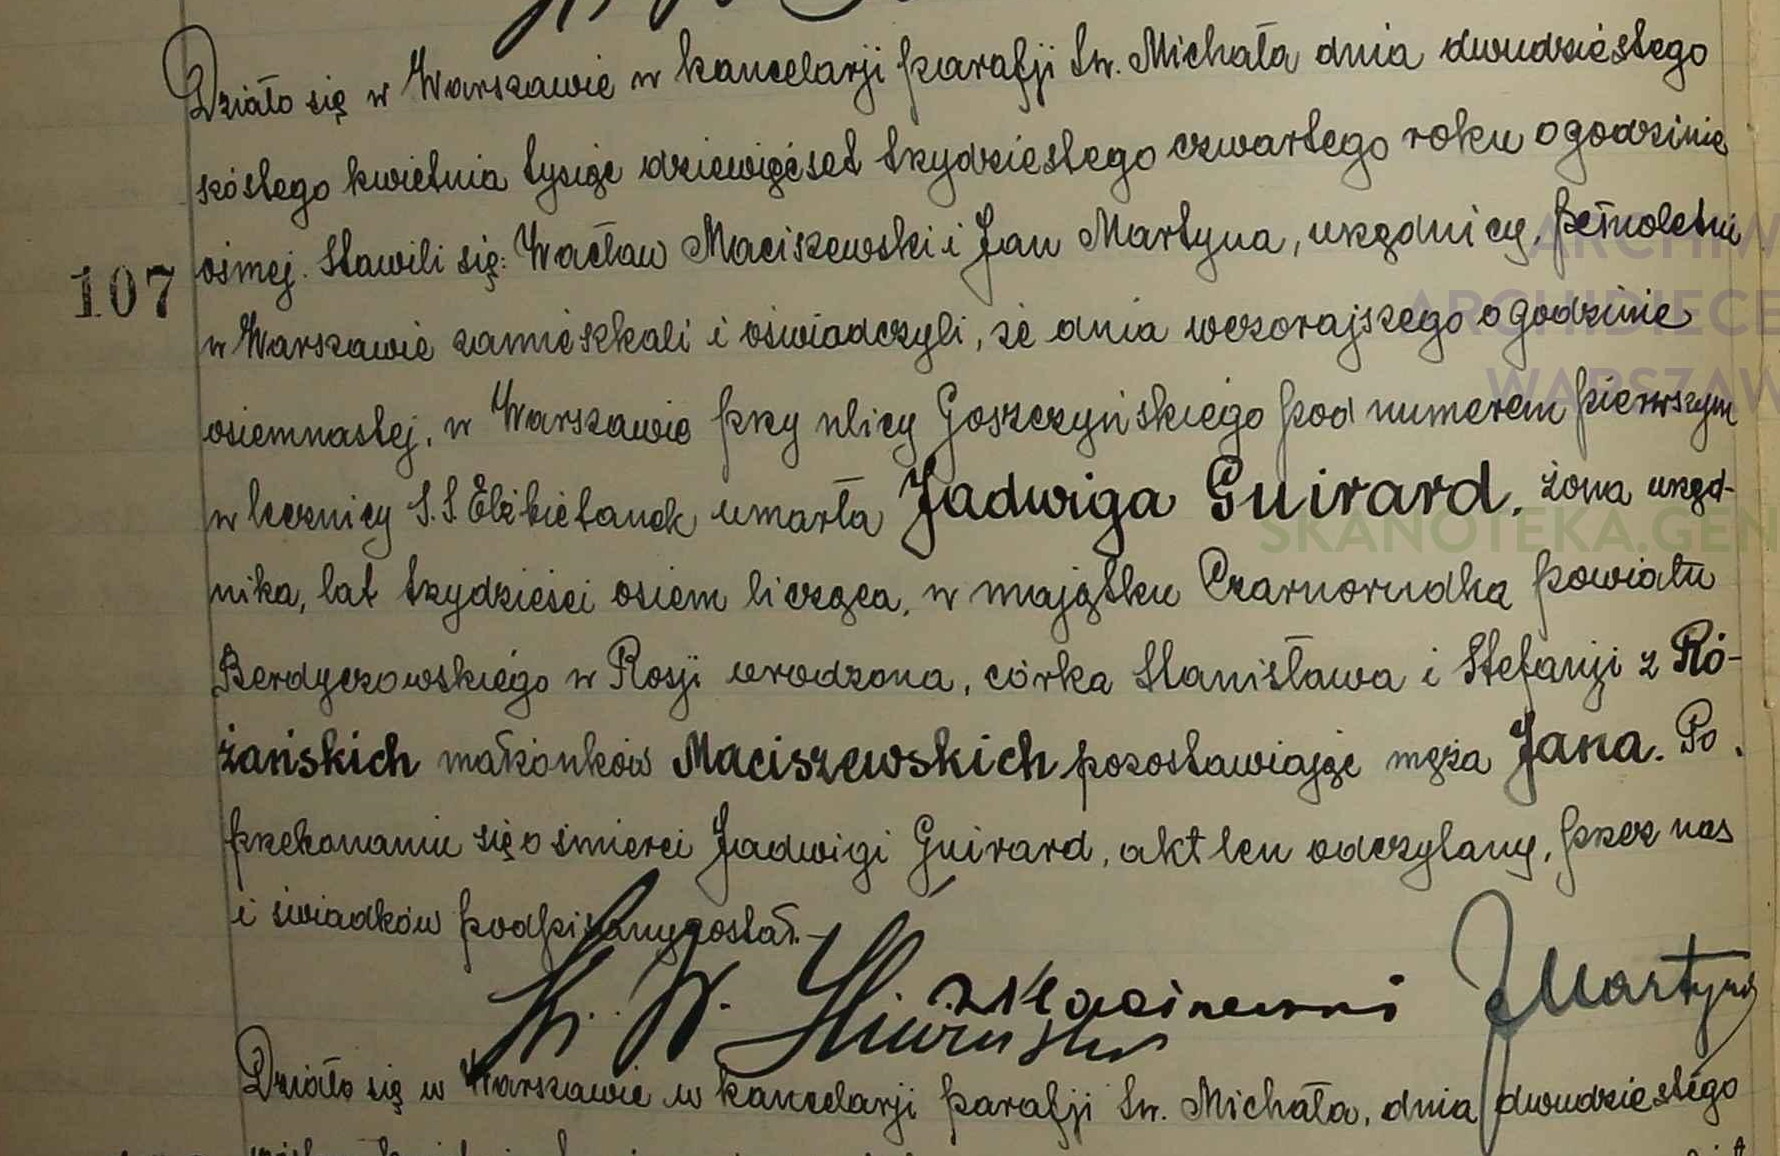 Działo się w Warszawie w kancelarji parafji Św. Michała dnia dwudziestego
szóstego kwietnia tysiąc dziewięćset trzydziestego czwartego roku o godzinie
ósmej. Stawili się: Wacław Maciszewski i Jan Martyna, urzędnicy, pełnoletni
107
w Warszawie zamieszkali i oświadczyli, że dnia wczorajszego o godzinie
osiemnastej, w Warszawie przy ulicy Goszczyńskiego pod numerem pierwszym
w lecznicy S.S Elżbietanek umarła Jadwiga Guirard, żona urzęd-
nika, lat trzydzieści osiem licząca, w majątku Czarnorudka powiatu
Berdyczowskiego w Rosji urodzona, córka Stanisława i Stefanji z Ró-
żańskich małżonków Maciszewskich pozostawiając męża Jana. Po
przekonaniu się o śmierci Jadwigi Guirard, akt ten odczytany, przez nas
i świadków podpisany został.-
W. Maciszewski JMartyna
Działo się w Warszawie w kancelarji parafji Św. Michała, dnia dwudziestego
ARCHIW
ARCHIDIECE
WARSZAW
SKANOTEKA.GEN